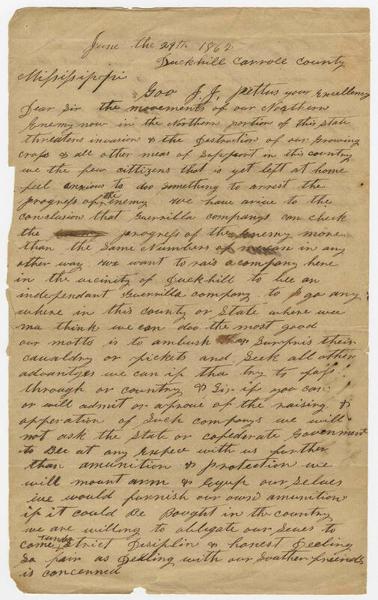 June the 29th 1862
Duckhill Carroll County
Mississippi
Gov J. J. Pettus your Excellency
Dear Sir the movements of our Northern
Enemy now in the Northern portion of this State
threatens invasion & the Destruction of our growing
crops & all other meas of Support in this country
we the few cittizens that is yet left at home
feel anxious to doo something to arrest the
progress of the Enemy we have arive to the
conclusion that Guerrilla companys can check
the progress of the Enemy more
than the Same Numbers of in any
other way we want to rais a company here
in the vicinity of Duckhill to bee an
independant Guerrilla company to go any
where in this county or State where wee
ma think we can doo the most good
our motto is to ambush Surpris their
cavaldry or pickets and Seek all other
advantges we can if tha try to pass
through or country & Sir if you can
or will admit or aprove of the raising &
opperation of Such companys we will
not ask the State or cofederate Government
to Bee at any Expece with us further
than amunition & protection we
will mount arm & Equip our Selves
we would furnish our own amunition
if it could Be Bought in the country
we are willing to obligate our Seves to
come under Strict Disiplin & honest Dealing
So fair as Dealing with our Southern friends
is concerned